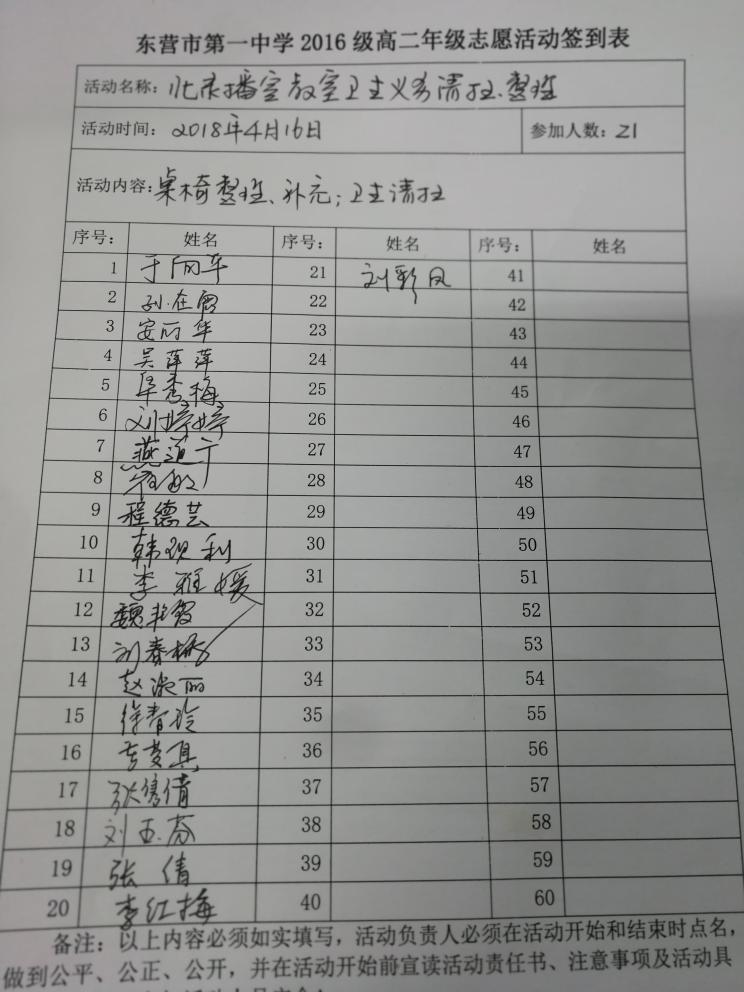 东营市第一中学2016级高二年级志愿活动签到表
活动名称：北录播室教室卫生义务清扫、整理
活动时间：2018年4月16日 参加人数：21
活动内容：桌椅整理、补充；卫生清扫
序号： 姓名 序号： 姓名 序号： 姓名
1 于丽华 21 刘彩凤 41
2 孙在 22 42
3 安丽华 23 43
4 吴萍萍 24 44
5 秀梅 25 45
6 刘婷婷 26 46
7 燕 27 47
8 28 48
9 程德芸 29 49
10 韩观利 30 50
11 李雅媛 31 51
12 魏艳霞 32 52
13 刘春 33 53
14 赵淑丽 34 54
15 徐青玲 35 55
16 真 36 56
17 张倩 37 57
18 刘玉芬 38 58
19 张倩 39 59
20 李红梅 40 60
备注：以上内容必须如实填写，活动负责人必须在活动开始和结束时点名，
做到公平、公正、公开，并在活动开始前宣读活动责任书、注意事项及活动具